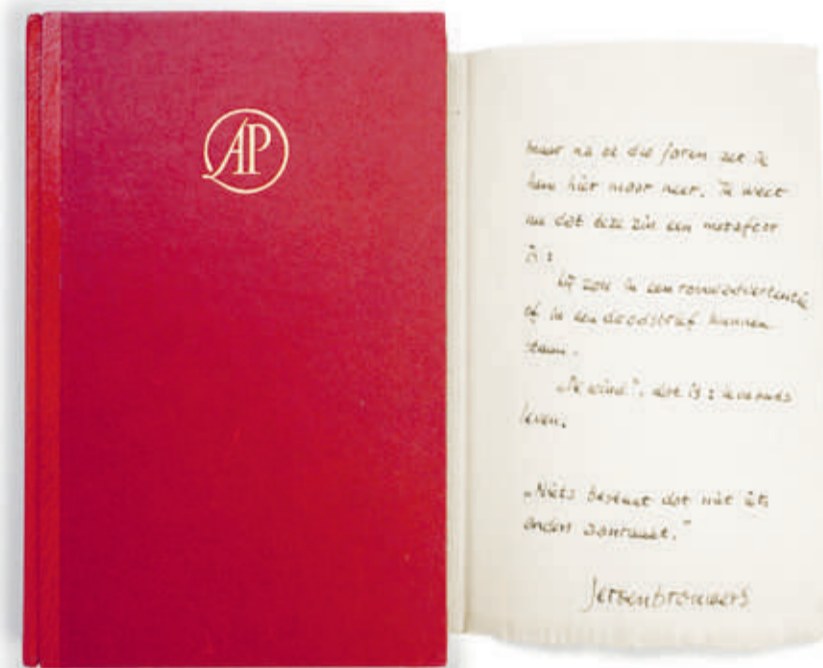 AP
maar na al die jaren zet ik
hem hier maar neer. Ik weet
nu dat deze zin een metafoor
is:
hij zou in een rouwadvertentie
of in een doodsbrief kunnen
staan.
„De wind”, dat is: levenses
leven.
„Niets bestaat dat niet iets
anders aanraakt.”
Jeroen Brouwers